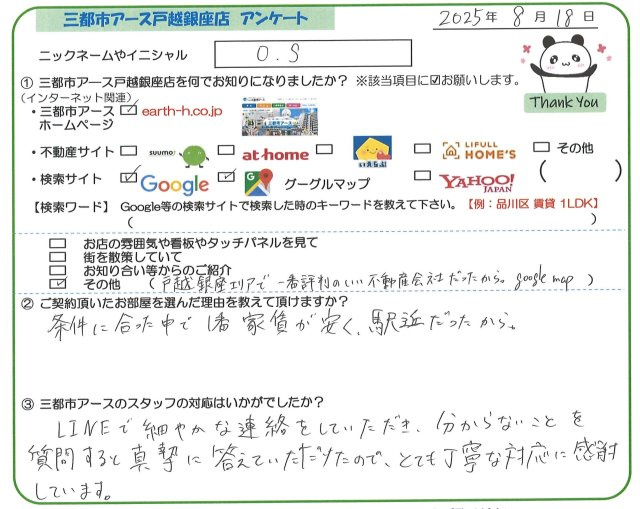 三都市アース戸越銀座店 アンケート
2025年 8月 18日
ニックネームやイニシャル O.S
① 三都市アース戸越銀座店を何でお知りになりましたか? ※該当項目に☑お願いします。
(インターネット関連)
・三都市アース ☑ earth-h.co.jp
ホームページ
Thank You
・不動産サイト ☐ suumo ☐ at home ☐ いえらぶ ☐ LIFULL HOME'S ☐ その他
・検索サイト ☑ Google ☑ グーグルマップ ☐ YAHOO! JAPAN ( )
【検索ワード】 Google等の検索サイトで検索した時のキーワードを教えて下さい。【例：品川区 賃貸 1LDK】
( )
☐ お店の雰囲気や看板やタッチパネルを見て
☐ 街を散策していて
☐ お知り合い等からのご紹介
☑ その他 (戸越銀座エリアで一番評判のいい不動産会社だったから。google map )
② ご契約頂いたお部屋を選んだ理由を教えて頂けますか?
条件に合った中で1番家賃が安く、駅近だったから。
③ 三都市アースのスタッフの対応はいかがでしたか?
LINEで細やかな連絡をしていただき、分からないことを
質問すると真摯に答えていただけたので、とても丁寧な対応に感謝
しています。